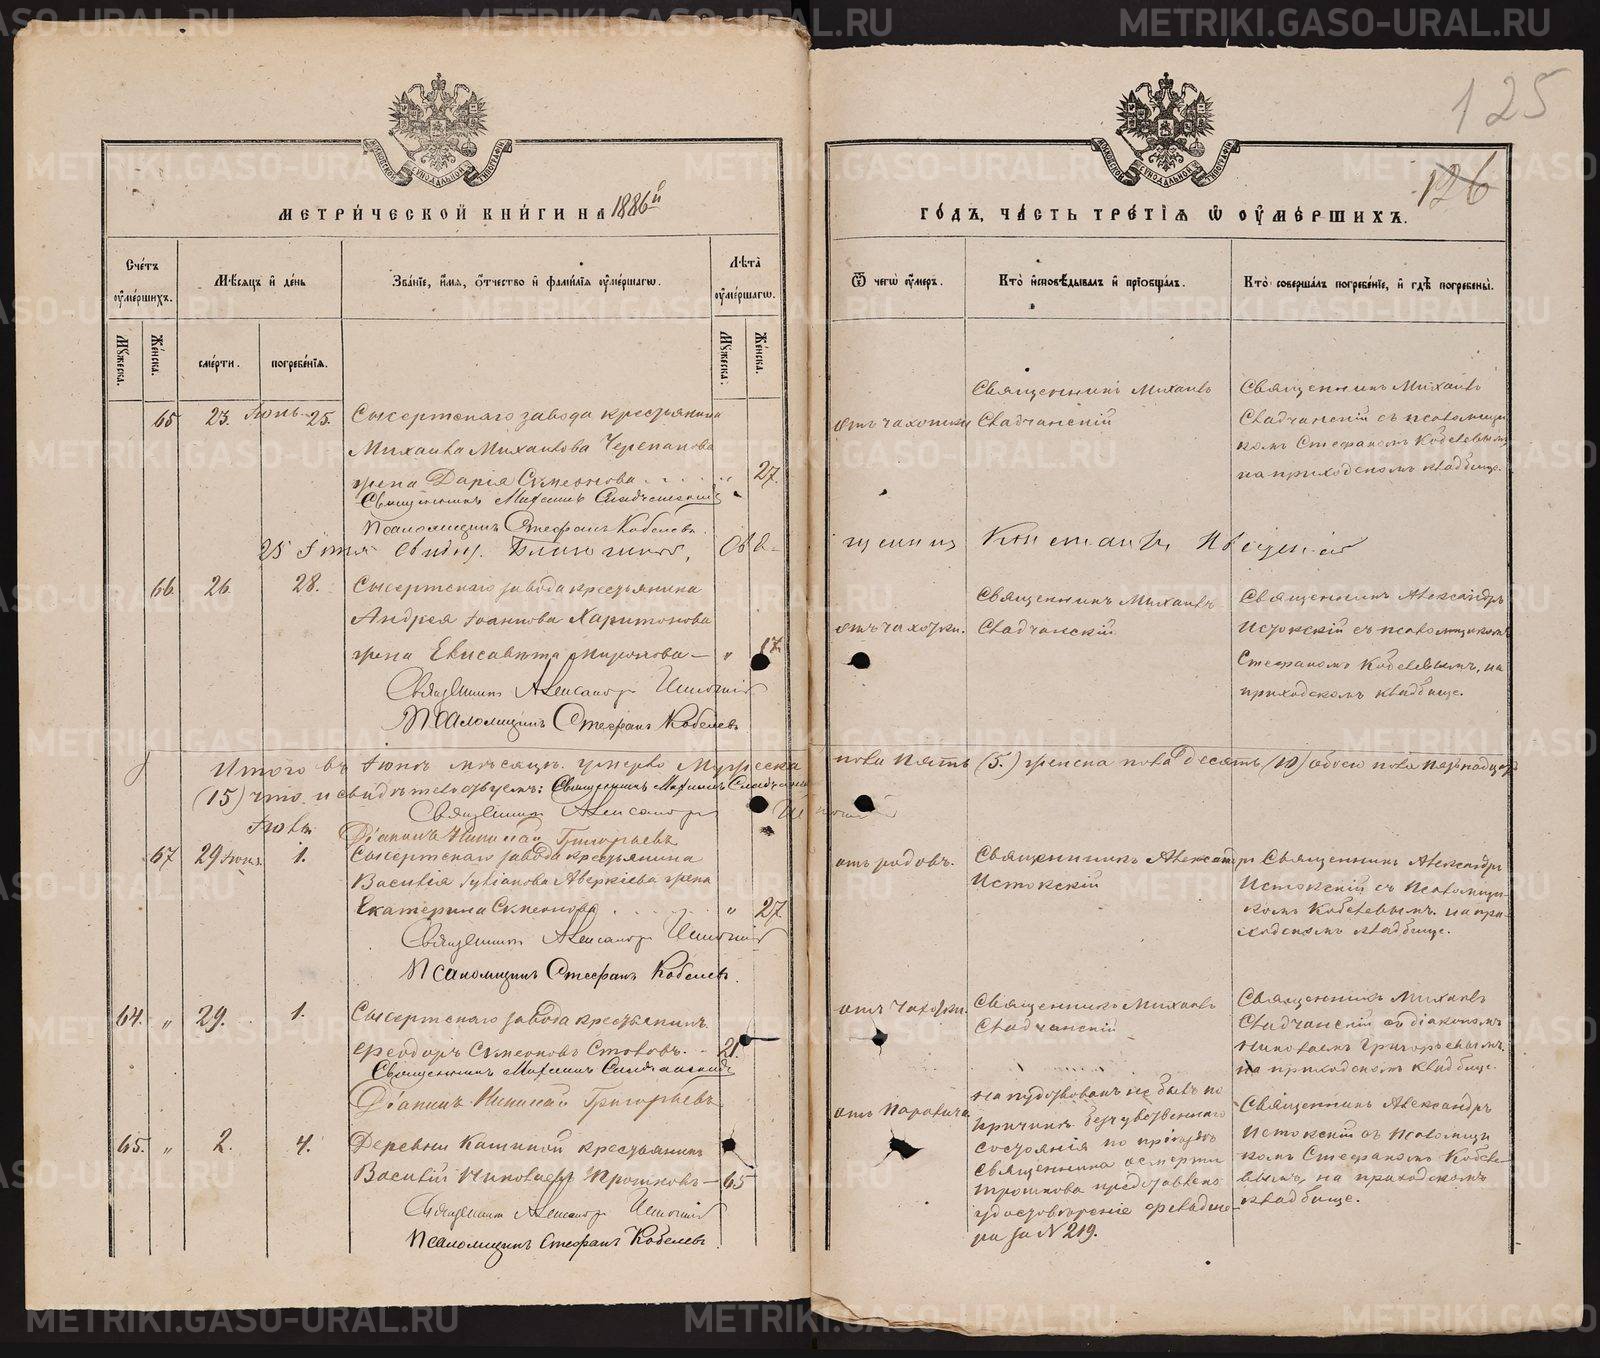 125
126
МЕТРИЧЕСКОЙ КНИГИ НА 1886й
ГОДЪ, ЧАСТЬ ТРЕТІЯ Ѡ ОУМЕРШИХЪ.
Счетъ оумершихъ.
Мѣсяцъ и день
Званіе, имя, отчество и фамилія оумершагѡ.
Лѣта оумершагѡ.
Ѿ чегѡ оумеръ.
Кто исповѣдывалъ и пріобщалъ.
Кто совершалъ погребеніе, и гдѣ погребены.
Мужеска.
Женска.
смерти.
погребенія.
Мужеска.
Женска.
65
23.
Іюнь
25.
Сысертскаго завода крестьянина
Михаила Михаилова Черепанова
жена Дарія Симеонова
"
27.
Священникъ Михаилъ
Псаломщикъ Стефанъ Кобелевъ.
отъ чахотки
Священникъ Михаилъ
Священникъ Михаилъ
съ псаломщи
комъ Стефаномъ Кобелевымъ
на приходскомъ кладбище.
25 Іюня свидѣт. Благочинный,
66
26
28.
Сысертскаго завода крестьянина
Андрея Іоаннова Харитонова
жена Елисавета Миронова —
"
отъ чахотки.
Священникъ Михаилъ
Священникъ Александръ
Истокскій съ псаломщикомъ
Стефаномъ Кобелевымъ, на
приходскомъ кладбище.
Священникъ Александръ Истокскій
Псаломщикъ Стефанъ Кобелевъ
Итого въ Іюнѣ мѣсяцѣ умерло мужеска
пола пять (5.) женска пола десять (10) обоего пола пятнадцать
(15) что и свидѣтельствуемъ: Священникъ Михаилъ
Священникъ Александръ Истокскій
Діаконъ Николай Григорьевъ
Іюль
67
29 Іюня
1.
Сысертскаго завода крестьянина
Василія Аверкіева жена
Екатерина Симеонова
"
27
отъ родовъ.
Священникъ Александръ
Истокскій
Священникъ Александръ
Истокскій съ Псаломщи
комъ Кобелевымъ. на при-
ходскомъ кладбище.
Священникъ Александръ Истокскій
Псаломщикъ Стефанъ Кобелевъ.
64.
"
29.
1.
Сысертскаго завода крестьянинъ
Ѳеодоръ Симеоновъ
21.
отъ чахотки.
Священникъ Михаилъ
Священникъ Михаилъ
съ діакономъ
Николаемъ Григорьевымъ.
на приходскомъ кладбище.
Священникъ Михаилъ
Діаконъ Николай Григорьевъ
65.
"
2.
4.
Деревни Кашиной крестьянинъ
Василій Николаевъ Трошковъ —
65
отъ паралича
напутствованъ не былъ по
причинѣ безчувственнаго
состоянія по пріѣздѣ
священника о смерти
Трошкова представлено
удостовѣреніе фельдше-
ра за № 219.
Священникъ Александръ
Истокскій съ Псаломщи
комъ Стефаномъ Кобеле-
вымъ, на приходскомъ
кладбище.
Священникъ Александръ Истокскій
Псаломщикъ Стефанъ Кобелевъ.
METRIKI.GASO-URAL.RU